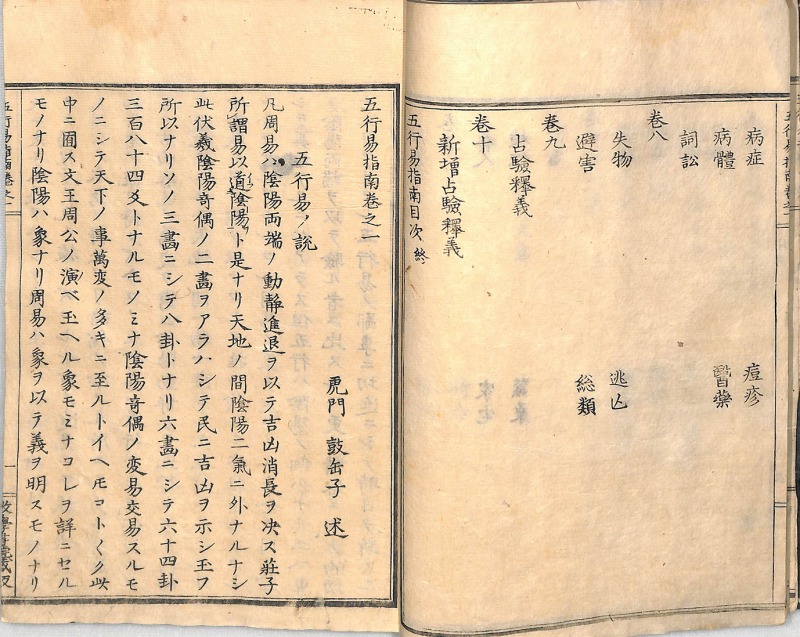 五行易指南卷之一
病症　痘疹
病體　醫藥
詞訟
卷八
失物　逃亡
避害　総類
卷九
占驗釋義
卷十
新增占驗釋義
五行易指南目次 終
五行易指南卷之一
五行易ノ說
虎門 鼓缶子 述
凡周易ハ陰陽兩端ノ動靜進退ヲ以テ吉凶消長ヲ决ス莊子
所謂易以道陰陽ト是ナリ天地ノ間陰陽二氣ニ外ナルナシ
此伏羲陰陽奇偶ノ二畵ヲアラハシテ民ニ吉凶ヲ示シ玉フ
所以ナリソノ三畵ニシテ八卦トナリ六畵ニシテ六十四卦
三百八十四爻トナルモノミナ陰陽奇偶ノ変易交易スルモ
ノニシテ天下ノ事萬変ノ多キニ至ルトイヘ𪜈コト〱ク此
中ニ囿ス文王周公ノ演ベ玉ヘル象モミナコレヲ詳ニセル
モノナリ陰陽ハ象ナリ周易ハ象ヲ以テ義ヲ明スモノナリ
五行易指南卷之一
一